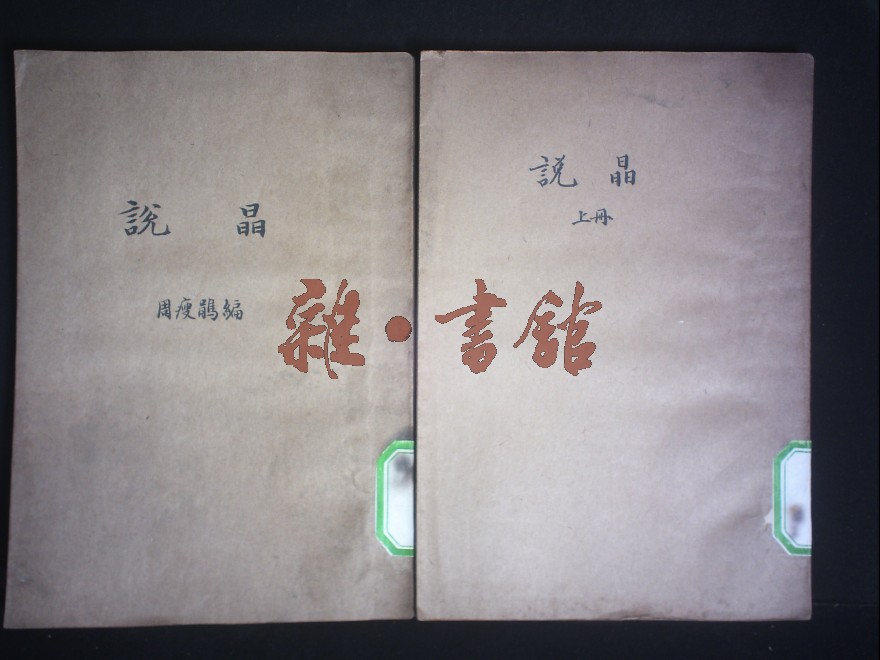 說晶
周瘦鵑編
說晶
上冊
雜·書館